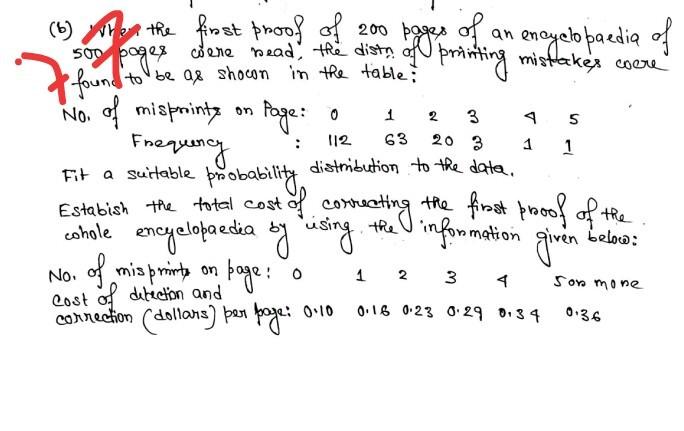 (b) When the first proof of 200 pages of an encyclopaedia of
500 pages were read, the distn. of printing mistakes were
7 found to be as shown in the table:
No. of misprints on Page: 0 1 2 3 4 5
Frequency : 112 63 20 3 1 1
Fit a suitable probability distribution to the data.
Estabish the total cost of correcting the first proof of the
whole encyclopaedia by using the information given below:
No. of misprints on page: 0 1 2 3 4 5 or more
cost of detection and
correction (dollars) per page: 0.10 0.16 0.23 0.29 0.34 0.36